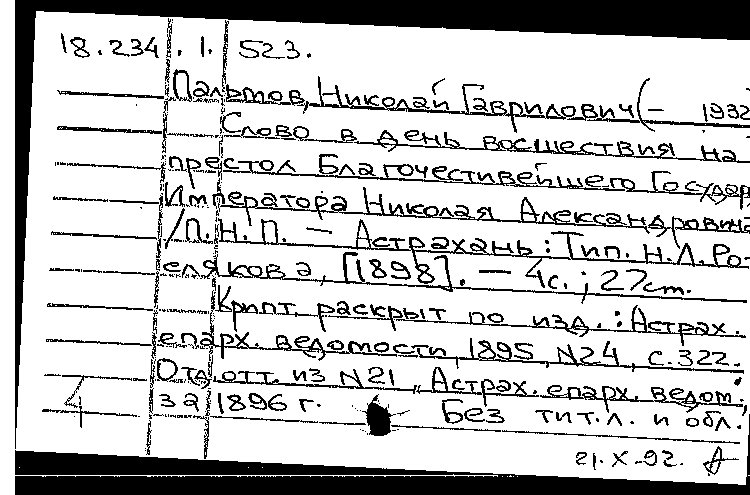 18.234. 1. 523.
Пальмов, Николай Гаврилович (- 1932
Слово в день восшествия на
престол Благочестивейшего Государ
Императора Николая Александровича
/П. Н. П. — Астрахань: Тип. Н.Л. Ро-
селякова, [1898]. — 4с.; 27см.
Крипт. раскрыт по изд.: Астрах.
епарх. ведомости, 1895, N24, с.322.
Отд. отт. из N21 „Астрах. епарх. ведом."
за 1896 г. Без тит.л. и обл.
4
21.X.92.